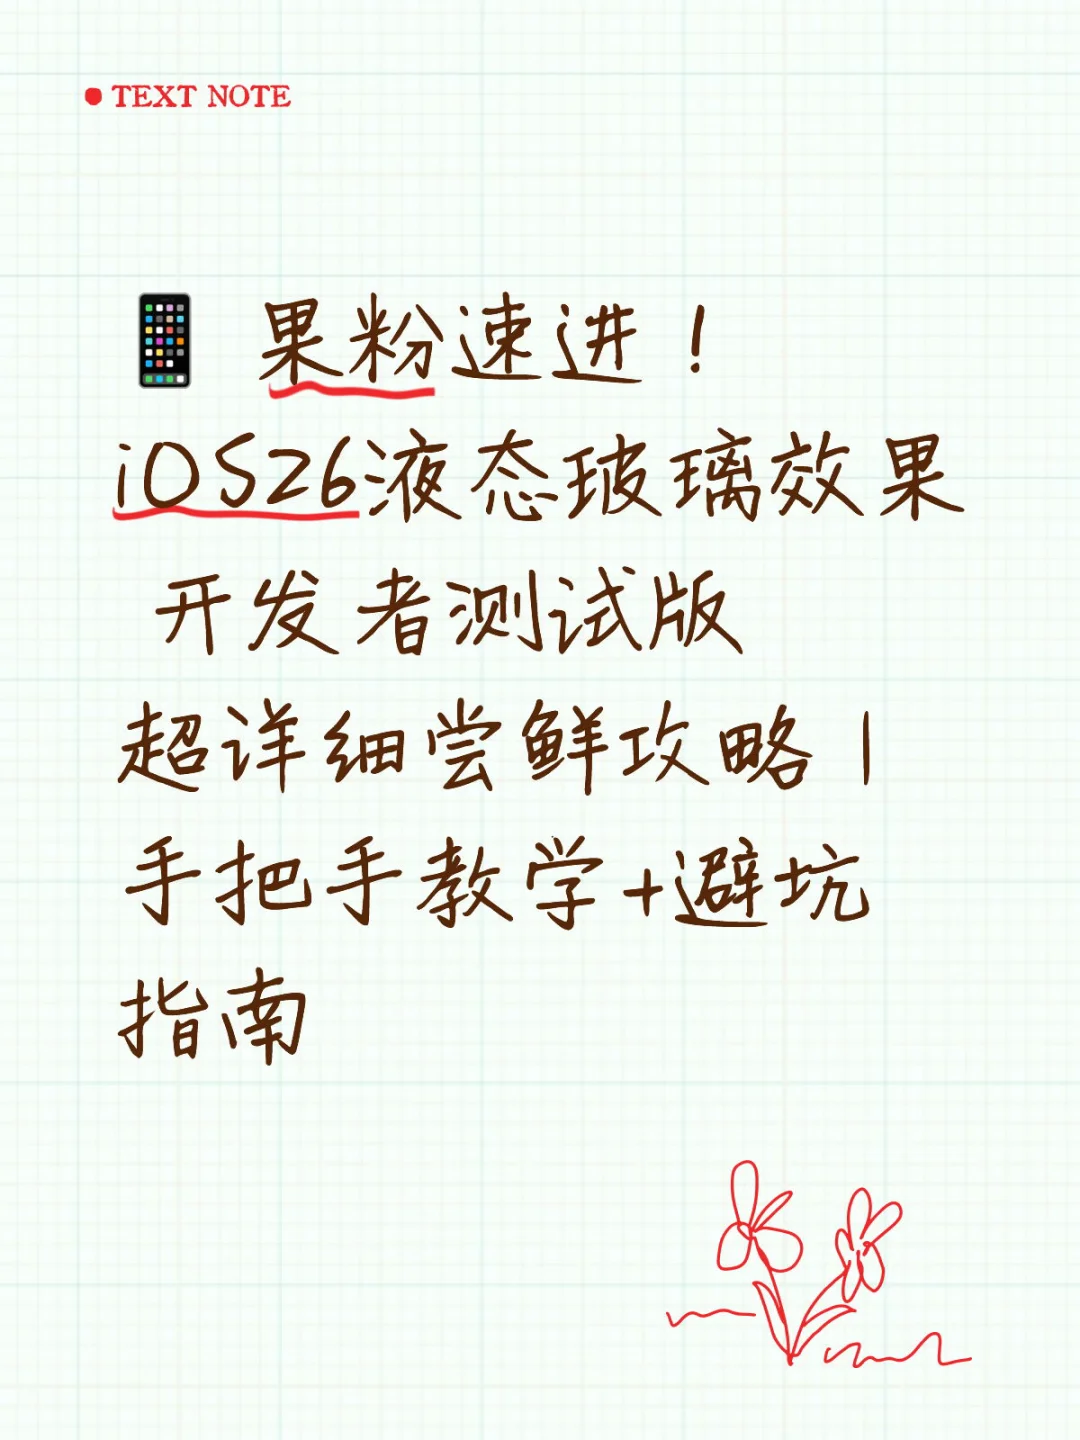 TEXT NOTE
📱 果粉速进！
iOS26液态玻璃效果
开发者测试版
超详细尝鲜攻略|
手把手教学+避坑
指南